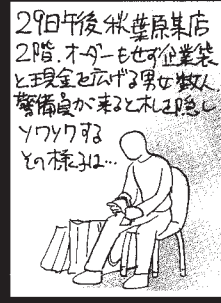 29日午後秋葉原某店
2階.オーダーもせず企業袋
と現金を広げる男女数人.
警備員が来ると札を隠し
ソワソワする
その様子は…